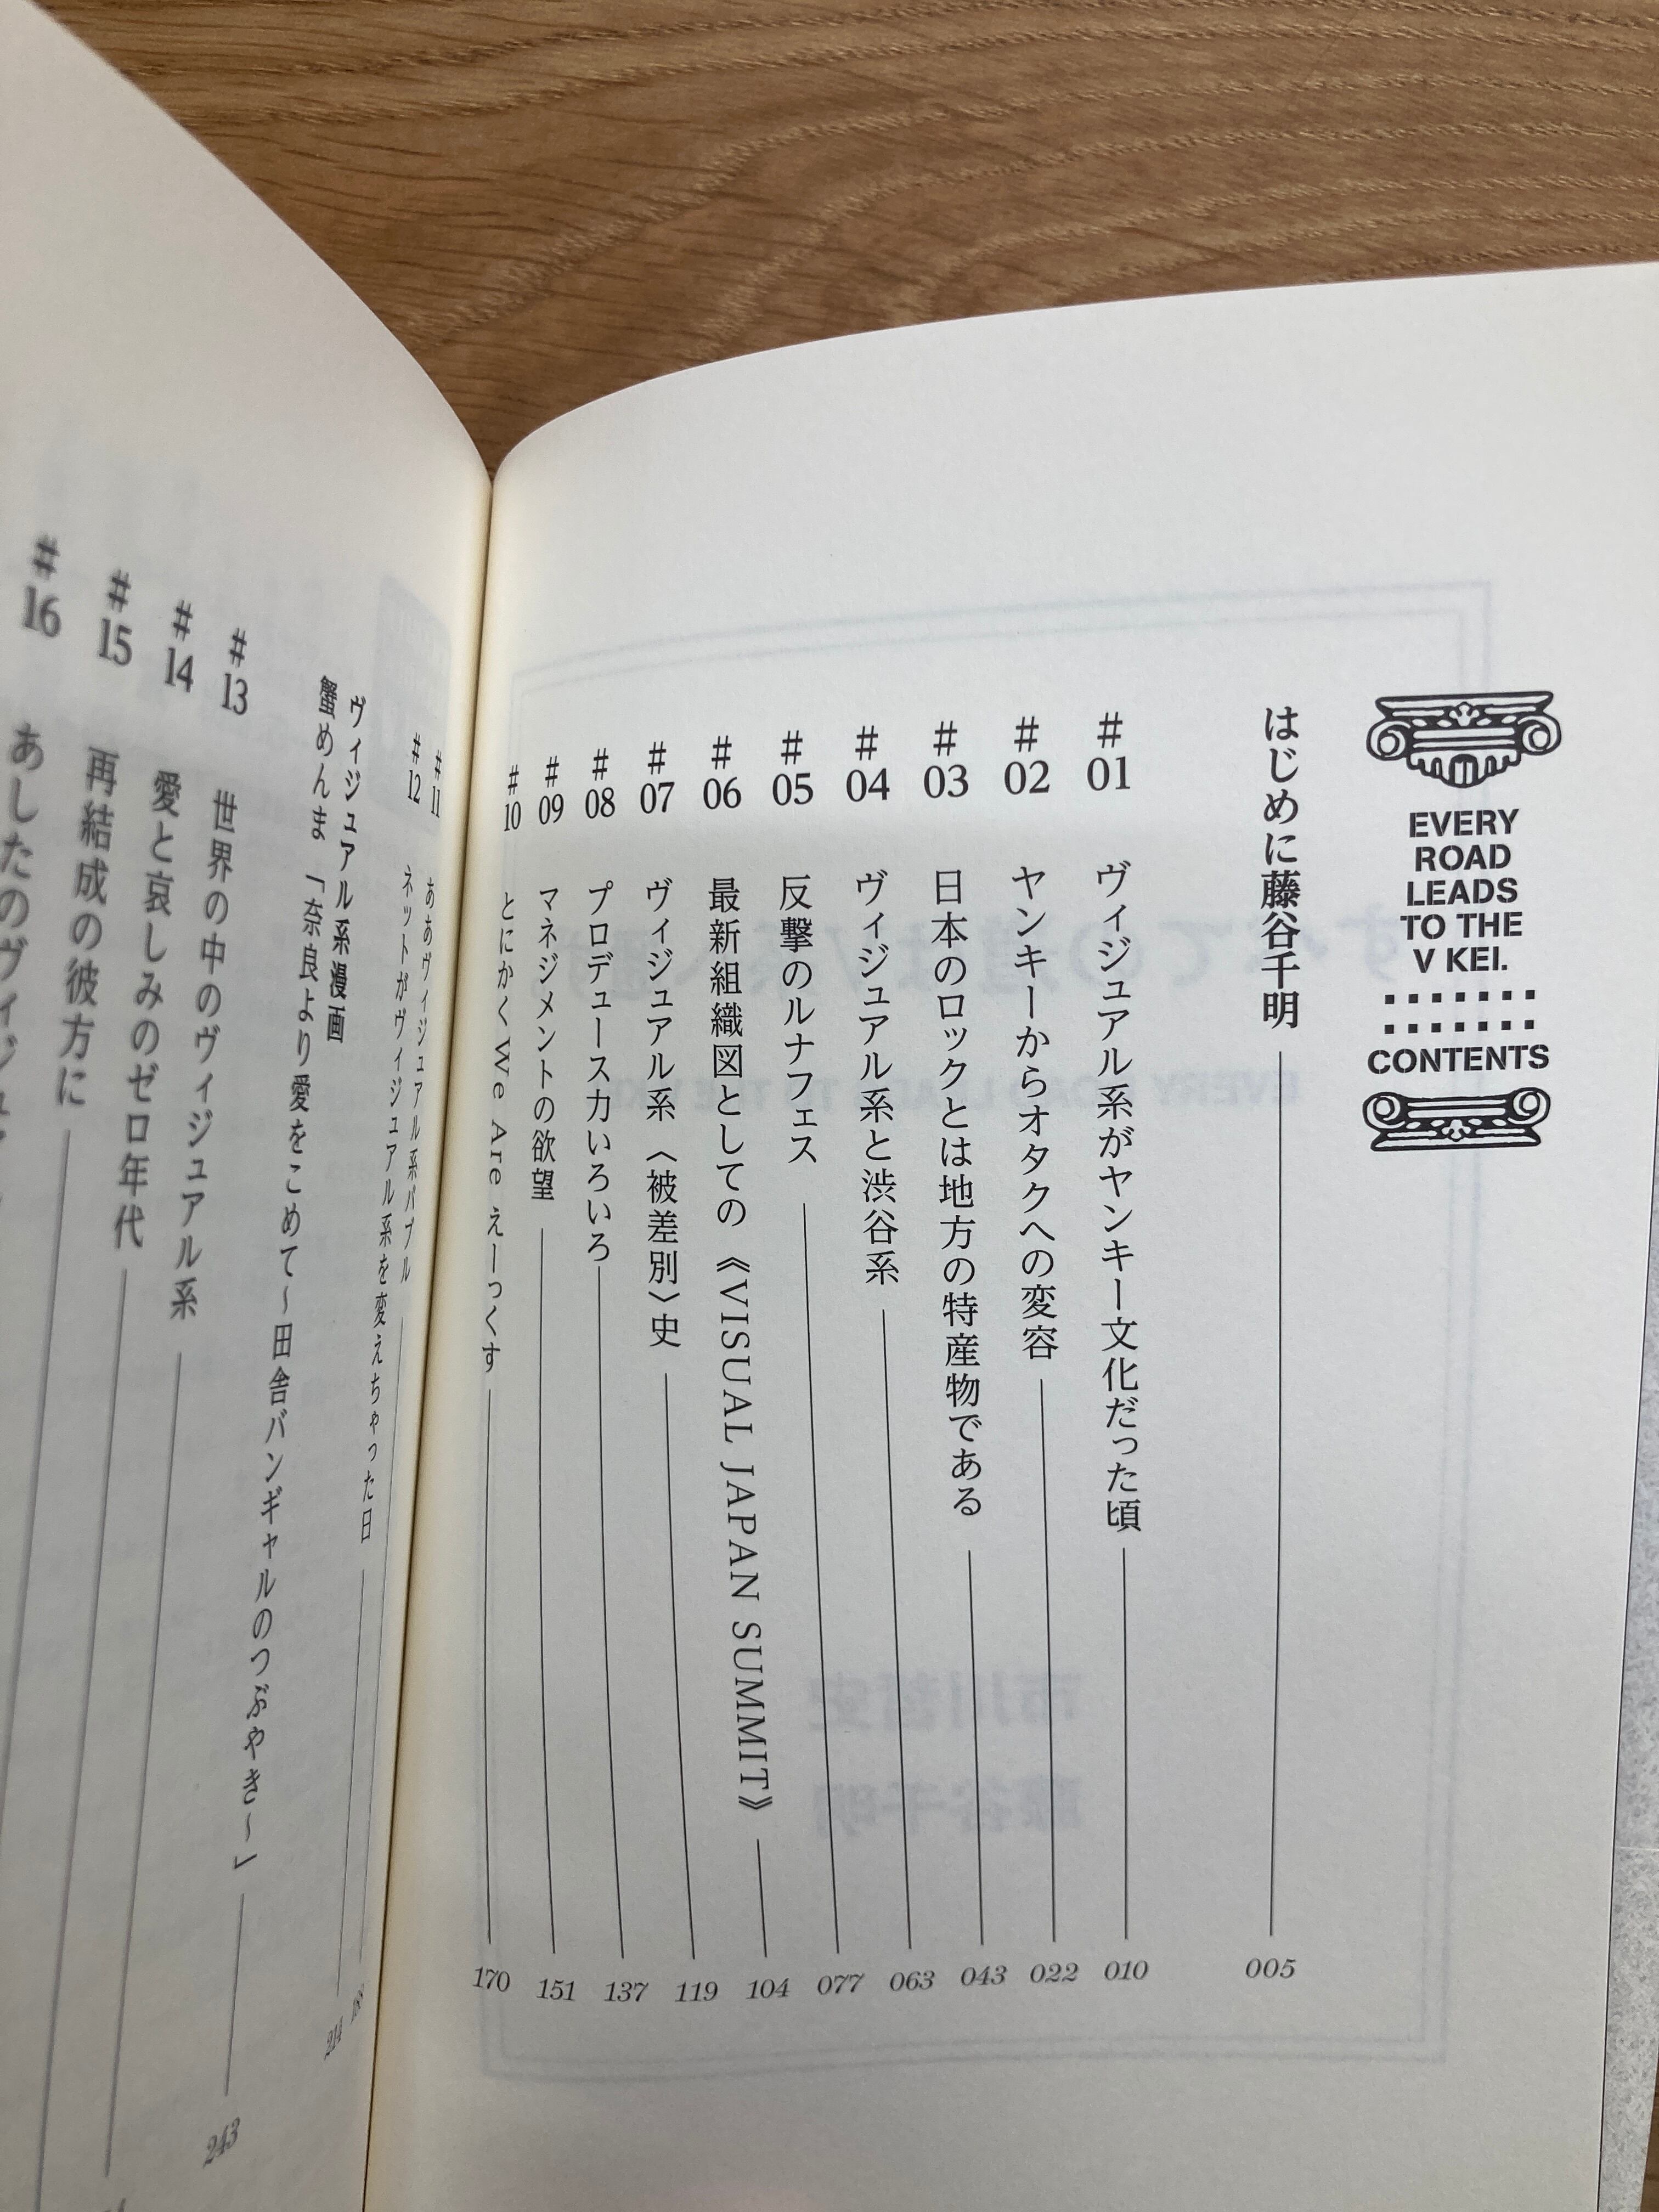 EVERY
ROAD
LEADS
TO THE
V KEI.
CONTENTS
はじめに 藤谷千明 005
#01 ヴィジュアル系がヤンキー文化だった頃 010
#02 ヤンキーからオタクへの変容 022
#03 日本のロックとは地方の特産物である 043
#04 ヴィジュアル系と渋谷系 063
#05 反撃のルナフェス 077
#06 最新組織図としての《VISUAL JAPAN SUMMIT》 104
#07 ヴィジュアル系〈被差別〉史 119
#08 プロデュース力いろいろ 137
#09 マネジメントの欲望 151
#10 とにかくWe Are えーっくす 170
#11 ああヴィジュアル系バブル
#12 ネットがヴィジュアル系を変えちゃった日 214
ヴィジュアル系漫画
蟹めんま「奈良より愛をこめて〜田舎バンギャルのつぶやき〜」 243
#13 世界の中のヴィジュアル系
#14 愛と哀しみのゼロ年代
#15 再結成の彼方に
#16 あしたのヴィジュア